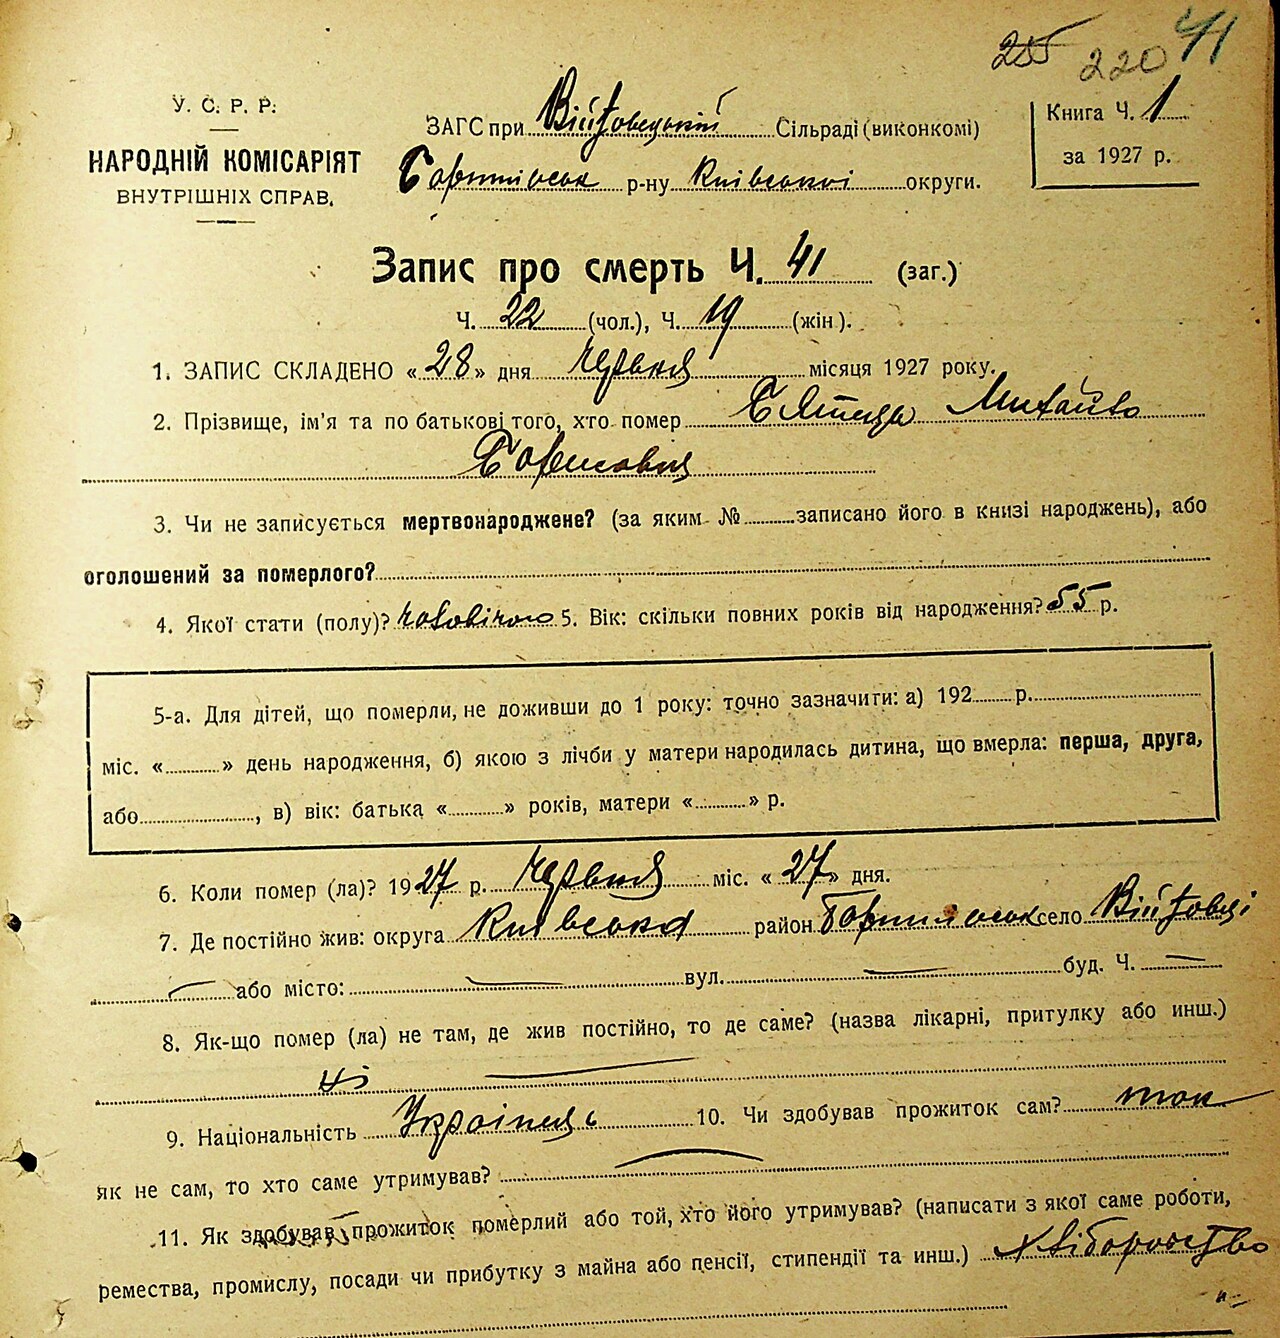 220 41
У. С. Р. Р.
НАРОДНІЙ КОМІСАРІЯТ
ВНУТРІШНІХ СПРАВ.
ЗАГС при Війтовецькій Сільраді (виконкомі)
р-ну Київської округи.
Книга Ч. 1
за 1927 р.
Запис про смерть Ч. 41 (заг.)
Ч. 22 (чол.), Ч. 19 (жін).
1. ЗАПИС СКЛАДЕНО «28» дня червня місяця 1927 року.
2. Прізвище, ім'я та по батькові того, хто помер Михайло
Борисович
3. Чи не записується мертвонароджене? (за яким № записано його в книзі народжень), або
оголошений за померлого?
4. Якої стати (полу)? чоловічого 5. Вік: скільки повних років від народження? 55 р.
5-а. Для дітей, що померли, не доживши до 1 року: точно зазначити: а) 192 р.
міс. « » день народження, б) якою з лічби у матери народилась дитина, що вмерла: перша, друга,
або , в) вік: батька « » років, матери « » р.
6. Коли помер (ла)? 1927 р. червня міс. «27» дня.
7. Де постійно жив: округа Київська район село Війтовці
— або місто: — вул. — буд. Ч. —
8. Як-що помер (ла) не там, де жив постійно, то де саме? (назва лікарні, притулку або инш.)
—
9. Національність Українець 10. Чи здобував прожиток сам? так
як не сам, то хто саме утримував? —
11. Як здобував прожиток померлий або той, хто його утримував? (написати з якої саме роботи,
ремества, промислу, посади чи прибутку з майна або пенсії, стипендії та инш.) хліборобство